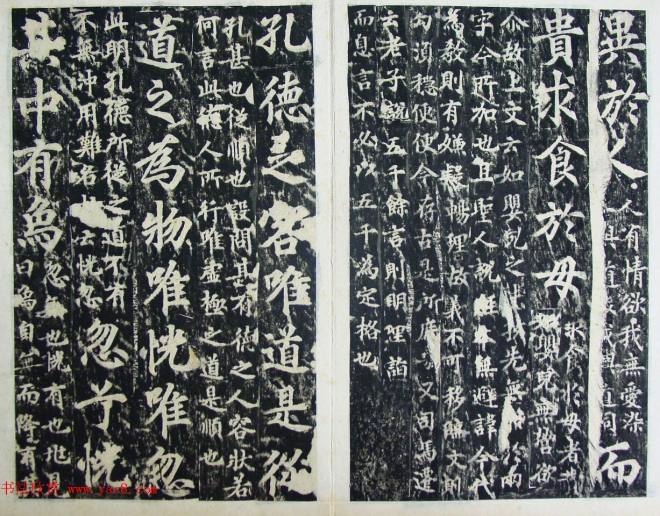 異於人人有情欲我無愛染 而
貴求食於母求食於母者
故上文云如嬰兒之未 先無
字今所加也且聖人說經本無避諱今代
為教則有嫌疑暢理故義不可移臨文則
句須穩便便今存古是所庶 又司馬遷
云老子說五千餘言則明理詣
而息言不必以五千為定格也
孔德之容唯道是從
孔甚也從順也設問甚有德之人容狀若
何言此德人所行唯虛極之道是順也
道之為物唯恍唯忽
此明孔德所從之道不有
不無沖用難名 云恍忽 忽兮恍
其中有 忽無也恍有也
自無而降有